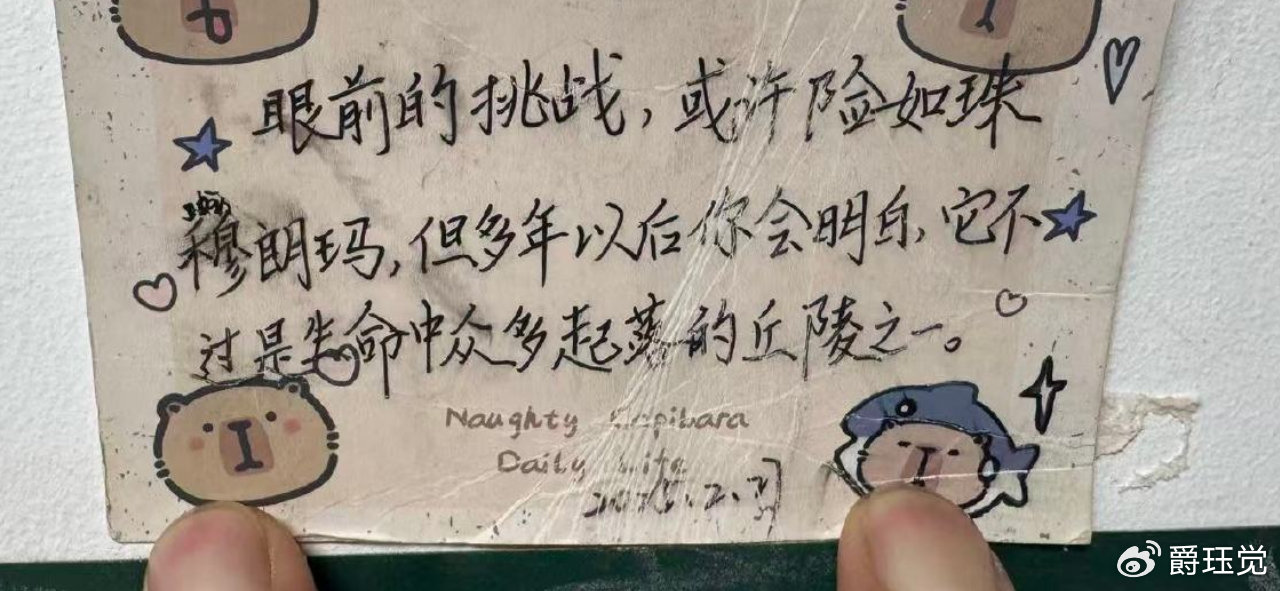 眼前的挑战，或许险如珠
穆朗玛，但多年以后你会明白，它不
过是生命中众多起落的丘陵之一。
Naughty Capibara
Daily Life
2025.2.
爵珏觉